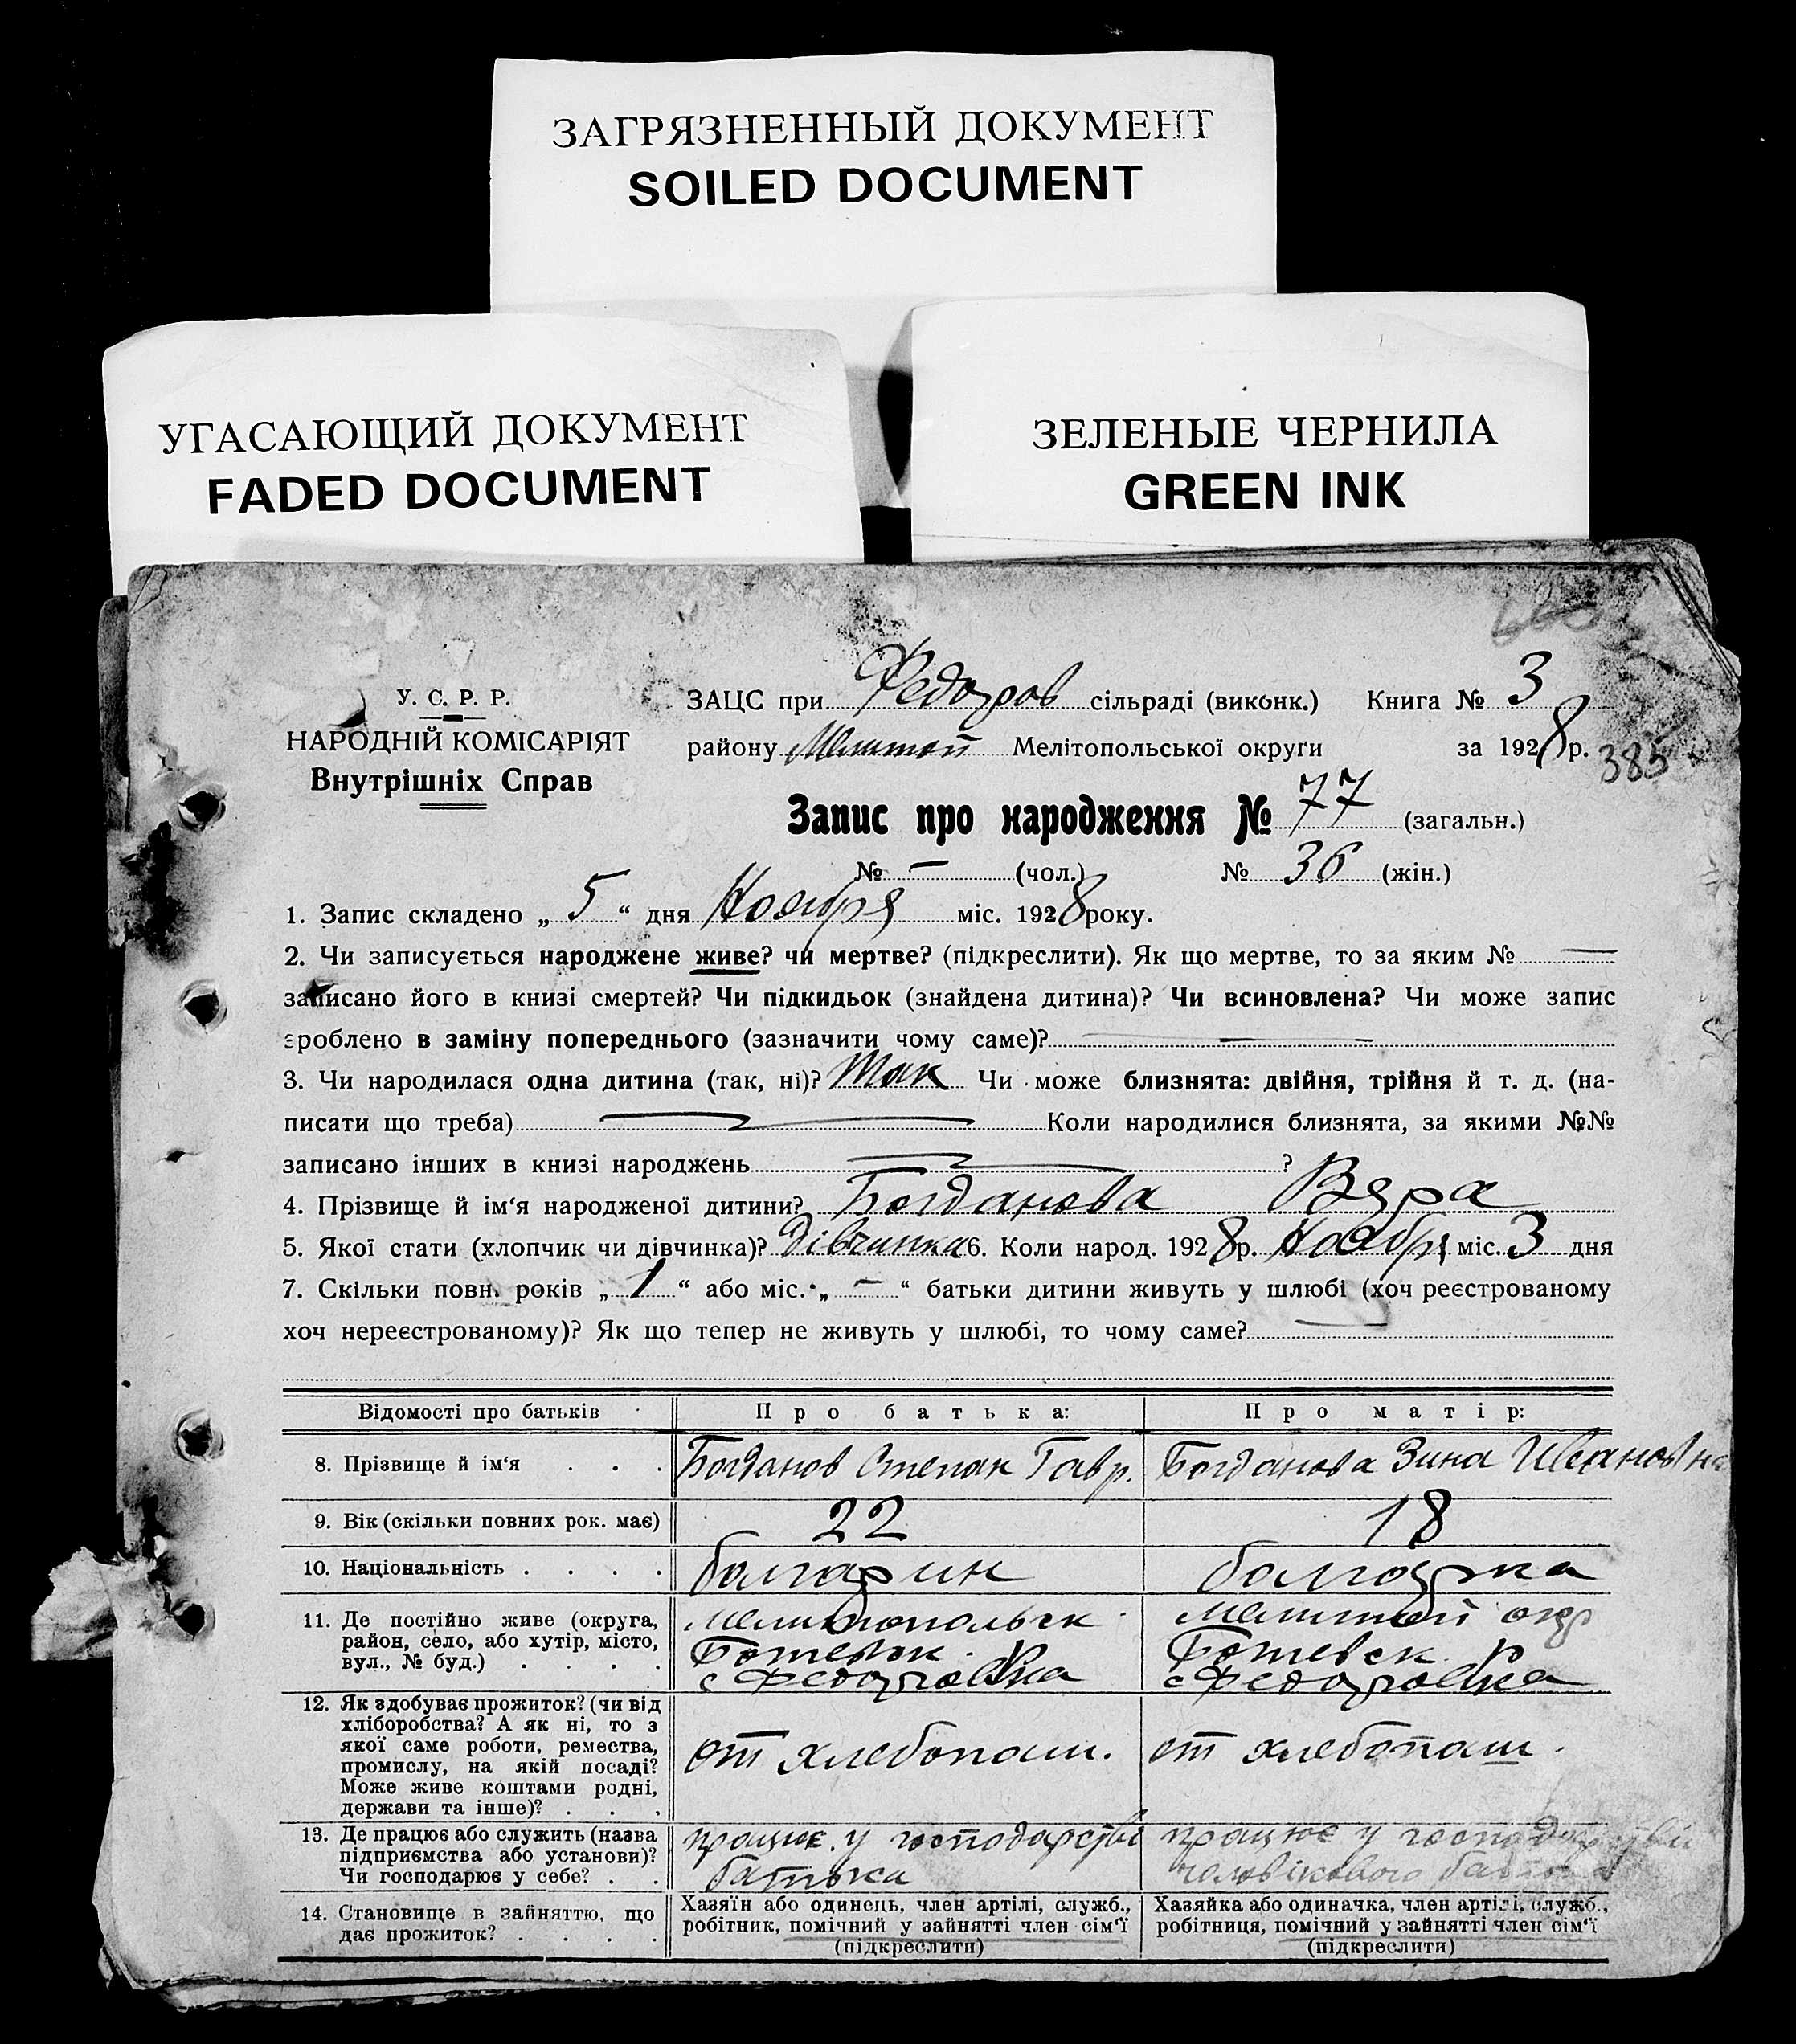 ЗАГРЯЗНЕННЫЙ ДОКУМЕНТ
SOILED DOCUMENT
УГАСАЮЩИЙ ДОКУМЕНТ
FADED DOCUMENT
ЗЕЛЕНЫЕ ЧЕРНИЛА
GREEN INK
У. С. Р. Р.
НАРОДНІЙ КОМІСАРІЯТ
Внутрішніх Справ
ЗАЦС при Федоров сільраді (виконк.) Книга № 3
району Мелитоп Мелітопольської округи за 1928 р. 385
Запис про народження № 77 (загальн.)
№ — (чол.) № 36 (жін.)
1. Запис складено „ 5 “ дня Ноября міс. 1928 року.
2. Чи записується народжене живе? чи мертве? (підкреслити). Як що мертве, то за яким № —
записано його в книзі смертей? Чи підкидьок (знайдена дитина)? Чи всиновлена? Чи може запис
зроблено в заміну попереднього (зазначити чому саме)? —
3. Чи народилася одна дитина (так, ні)? Так Чи може близнята: двійня, трійня й т. д. (на-
писати що треба) — Коли народилися близнята, за якими №№
записано інших в книзі народжень — ?
4. Прізвище й ім‘я народженої дитини? Богданова Вяра
5. Якої стати (хлопчик чи дівчинка)? дівчинка 6. Коли народ. 1928 р. Ноября міс. 3 дня
7. Скільки повн. років „ 1 “ або міс. „ — “ батьки дитини живуть у шлюбі (хоч реєстрованому
хоч нереєстрованому)? Як що тепер не живуть у шлюбі, то чому саме? —
Відомості про батьків Про батька: Про матір:
8. Прізвище й ім‘я . . . Богданов Степан Гавр. Богданова Зина Ивановна
9. Вік (скільки повних рок. має) 22 18
10. Національність . . . . болгарин болгарка
11. Де постійно живе (округа,
район, село, або хутір, місто,
вул., № буд.) . . . .
Мелитопольск
Ботевск.
с Федоровка
Мелитоп окр
Ботевск. р
с Федоровка
12. Як здобуває прожиток? (чи від
хліборобства? А як ні, то з
якої саме роботи, ремества,
промислу, на якій посаді?
Може живе коштами родні,
держави та інше)? . . .
от хлебопаш.
от хлебопаш.
13. Де працює або служить (назва
підприємства або установи)?
Чи господарює у себе? . .
працює у господарстві
батька
працює у господарстві
чоловікового батька
14. Становище в зайняттю, що
дає прожиток? . . . .
Хазяїн або одинець, член артілі, служб.,
робітник, помічний у зайнятті член сім‘ї
(підкреслити)
Хазяйка або одиначка, член артілі, служб.,
робітниця, помічний у зайнятті член сім‘ї
(підкреслити)